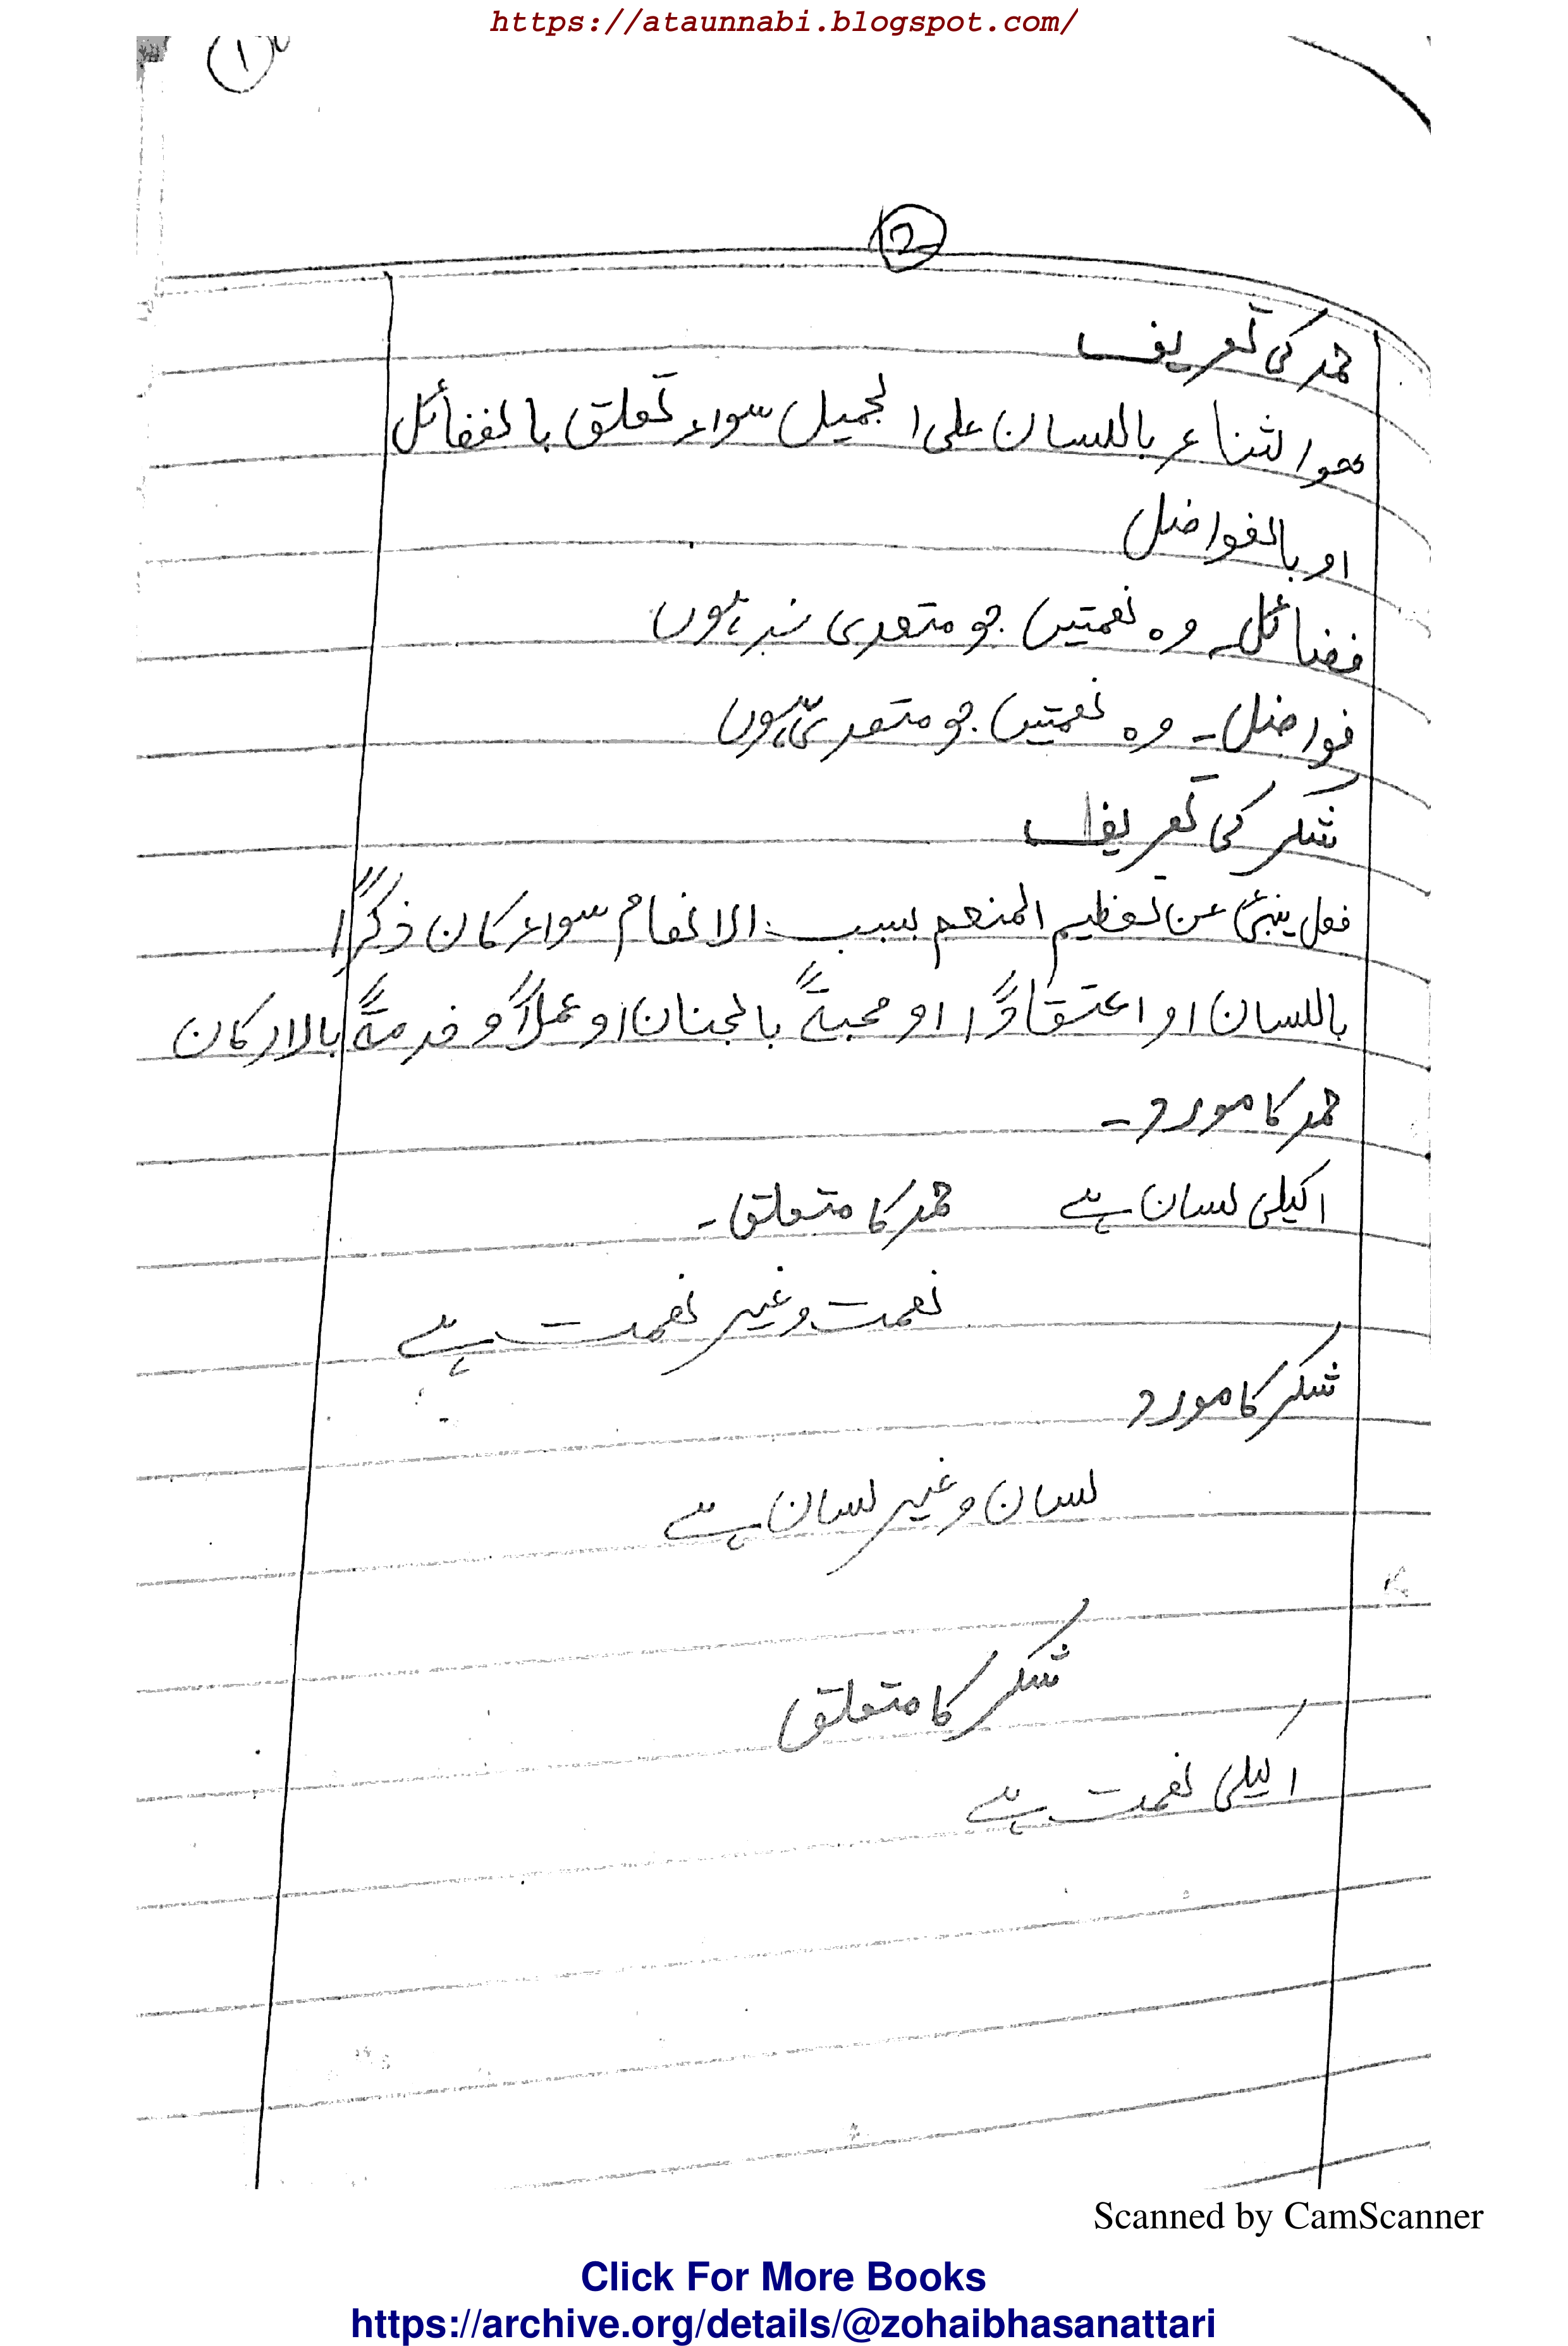 https://ataunnabi.blogspot.com/
1
2
حمد کی تعریف
ھوا لثناء باللسان علی الجمیل سواء تعلق بالفضائل
او بالفواضل
فضائل ۔ وہ نعمتیں جو متعدی نہ ہوں
فواضل ۔ وہ نعمتیں جو متعدی ہوں
شکر کی تعریف
فعل ینبئ عن تعظیم المنعم بسبب الانعام سواء کان ذکرًا
باللسان او اعتقادًا او محبۃً بالجنان او عملاً و خدمۃً بالارکان
حمد کا مورد ۔
اکیلی لسان ہے حمد کا متعلق ۔
نعمت و غیر نعمت ہے
شکر کا مورد
لسان و غیر لسان ہے
شکر کا متعلق
اکیلی نعمت ہے
Scanned by CamScanner
Click For More Books
https://archive.org/details/@zohaibhasanattari